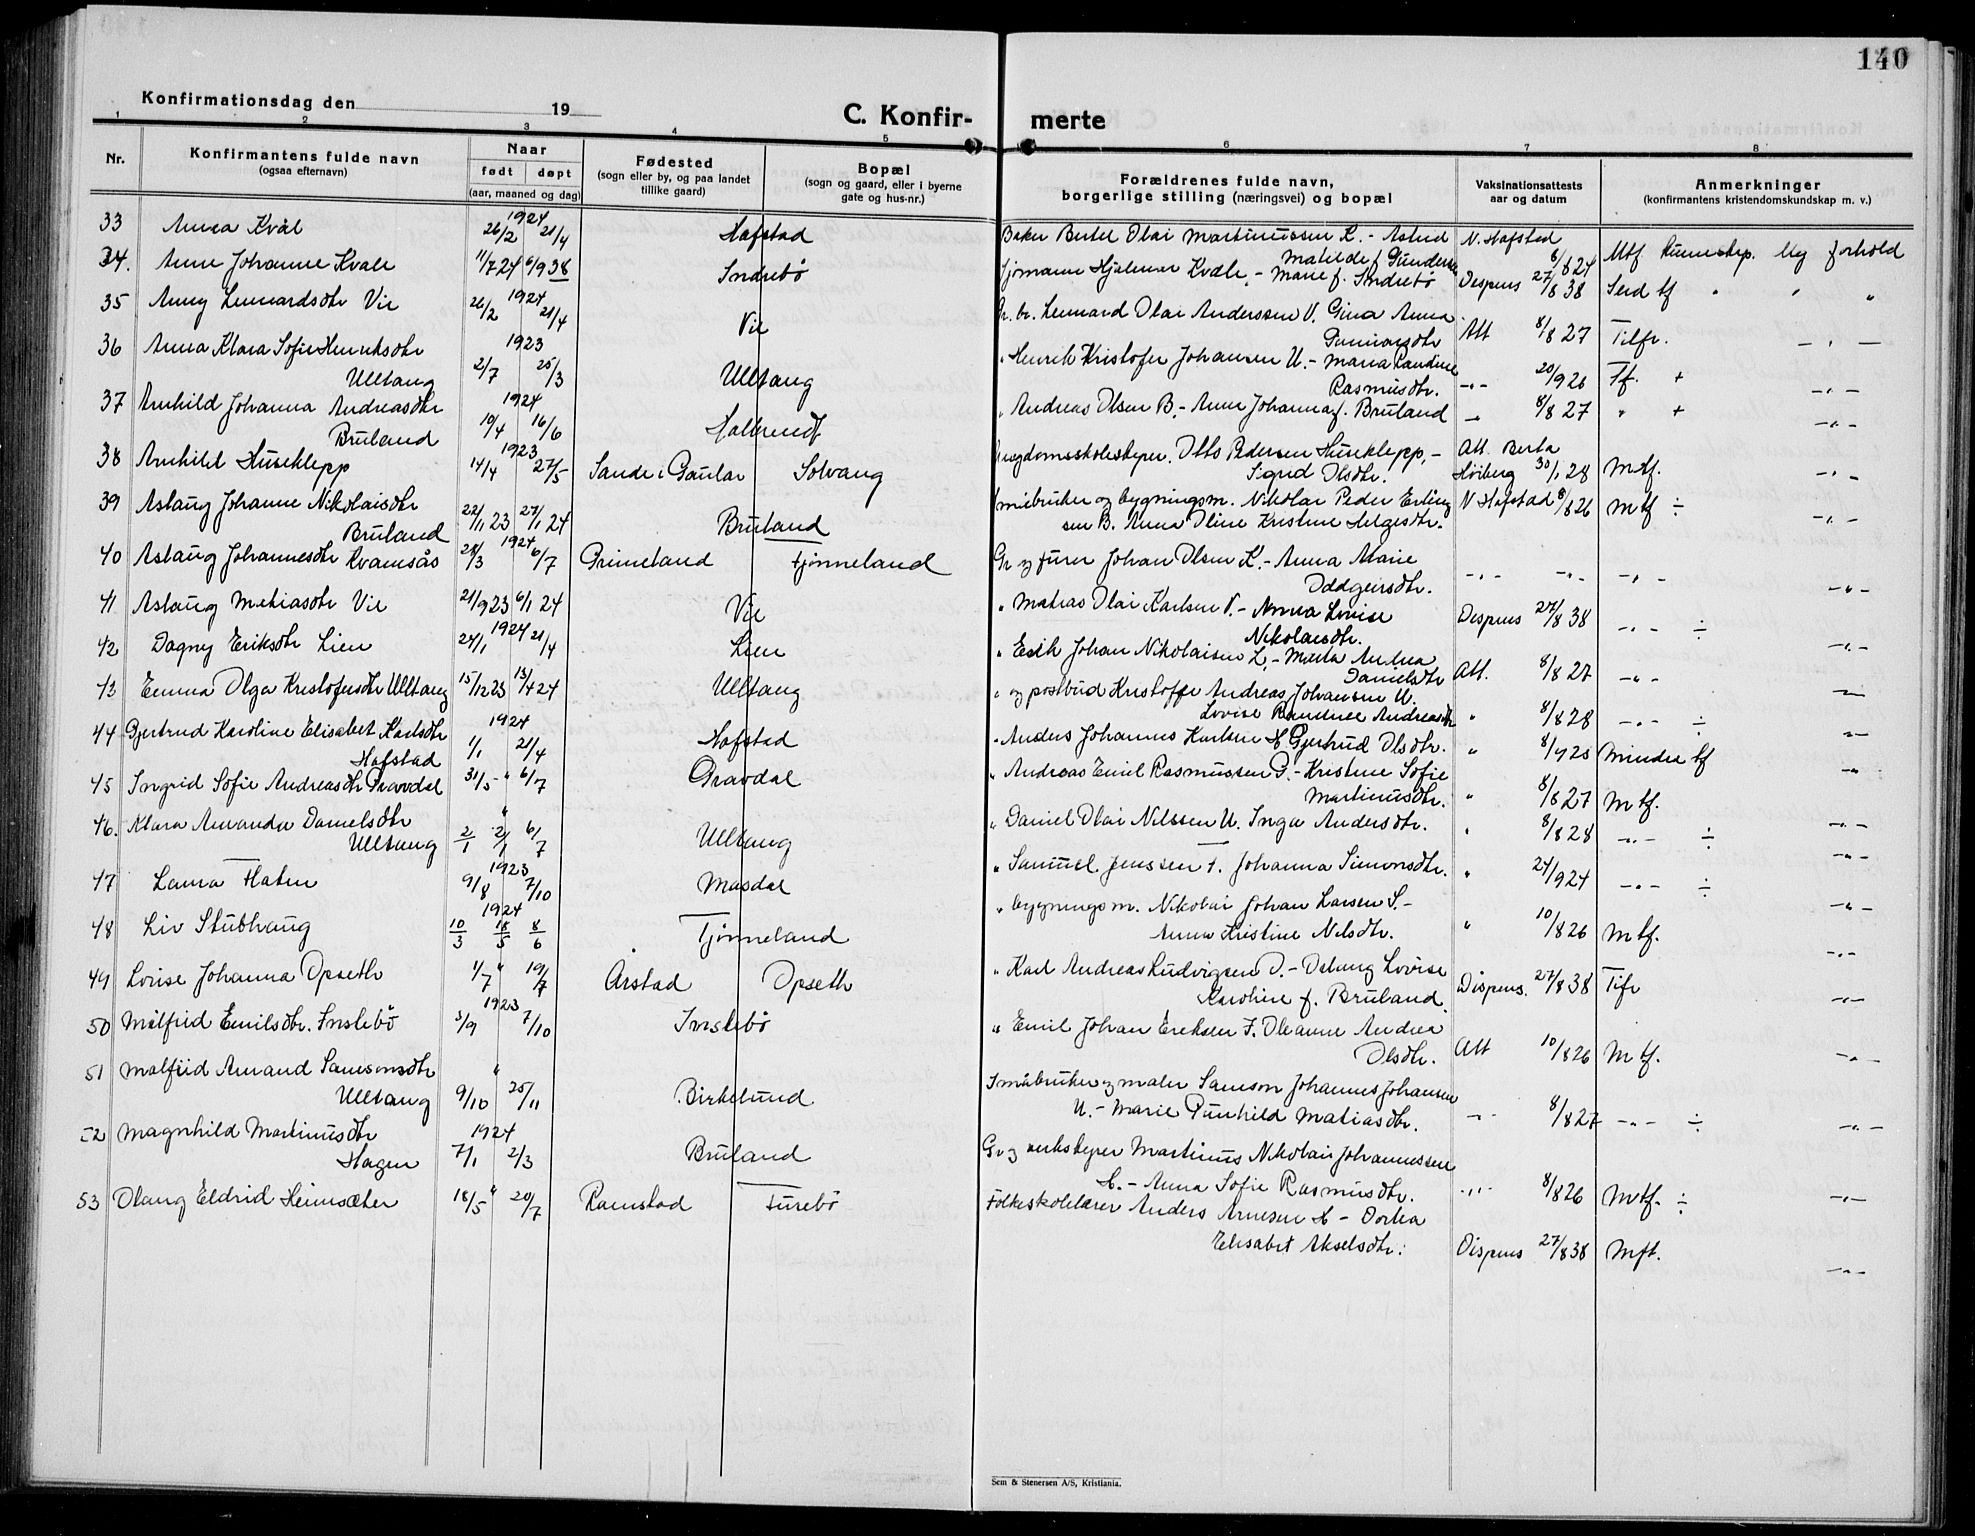 140
Konfirmationsdag den 19
C. Konfir-
merte
1 2 3 4 5 6 7 8
Nr.
Konfirmantens fulde navn
(ogsaa efternavn)
Naar
født døpt
(aar, maaned og dag)
Fødested
(sogn eller by, og paa landet
tillike gaard)
Bopæl
(sogn og gaard, eller i byerne
gate og hus-nr.)
Forældrenes fulde navn,
borgerlige stilling (næringsvei) og bopæl
Vaksinationsattests
aar og datum
Anmerkninger
(konfirmantens kristendomskundskap m. v.)
33 Anna Kvål 1924 26/2 21/4 Hafstad Baker Bertel Olai Martinussen K. - Astrid N. Hafstad
Matilde f. Gundersen 8/8 24 Mtf kunnskap. Uty forhold
34. Anne Johanne Kvale 11/7 24 6/9 38 Indrebø Hjalmar Kvale, - Marie f. Indrebø Dispens 27/8 38 Serd tf " " "
35 Anny Lennardsdtr Vie 1924 26/2 21/4 Vie Gr. br. Lennard Olai Anderssen V. Gina Anna
Gunnarsdtr Att 8/8 27 Tilfr. - " -
36 Anna Klara Sofie Henriksdtr
Ulltang 1923 2/7 25/3 Ulltang " Henrik Kristofer Johansen U. - Maria Randine
Rasmusdtr. - " - 20/9 26 Tf. + - " -
37 Arnhild Johanna Andreasdtr
Bruland 1924 10/4 16/6 Halbrendt " Andreas Olsen B. - Anne Johanna f. Bruland - 8/8 27 " + - " -
38 Arnhild Huseklepp 1923 14/4 27/5 Sande i Gaular Solvang Ungdomsskolestyrer, Otto Pedersen Huseklepp, -
Sigrid Olsdtr. Att. Berta
Høiberg 30/1 28 Mtf. - " -
39 Aslaug Johanne Nikolaisdtr
Bruland 22/11 23 27/1 24 Bruland Småbruker og bygningsm. Nikolai Peder Erling
sen B. Anna Oline Kristine Helgesdtr. N Hafstad 8/8 26 Mtf ÷ - " -
40 Aslaug Johannesdtr Kvamsås 1924 28/3 6/7 Grimeland Tjønneland Gr og furer Johan Olsen K. - Anna Marie
Oddgeirsdtr. - " - - " - - " - - " -
41 Aslaug Matiasdtr Vie 21/9 23 6/1 24 Vie " Matias Olai Karlsen V. - Anna Lovise
Nikolaisdtr. Dispens 27/8 38 - " - ÷ - " -
42 Dagny Eriksdtr Lien 1924 24/1 21/4 Lien " Erik Johan Nikolaisen L. - Marta Andrea
Danielsdtr Att. 8/8 27 - " - - " -
43 Emma Olga Kristofersdtr Ulltang 15/12 23 13/4 24 Ulltang " og postbud Kristoffer Andreas Johansen U.
Lovise Randine Andreasdtr " 8/8 28 - " - ÷ - " -
44 Gjertrud Karoline Elisabet Karlsdtr
Hafstad 1924 1/1 21/4 Hafstad - Anders Johannes Karlsen H. Gjertrud Olsdtr. " Mindre tf - " -
45 Ingrid Sofie Andreasdtr Gravdal 31/5 " 6/7 Gravdal " Andreas Emil Rasmussen G. - Kristine Sofie
Martinusdtr. " 8/8 27 Mtf. - " -
46. Klara Amanda Danielsdtr
Ulltang 2/1 6/7 Ulltang " Daniel Olai Nilssen U. Inga Andersdtr. " 8/8 28 - " - ÷ - " -
47 Laura Flaten 1923 9/8 7/10 Masdal " Samuel Jenssen F. Johanna Simonsdtr. " 24/9 24 - " - ÷ - " -
48 Liv Stubhaug 1924 10/3 18/5 8/6 Tjønneland " bygningsm. Nikolai Johan Larsen S. -
Anna Kristine Nilsdtr. " 10/8 26 Mtf. - " -
49 Lovise Johanna Opseth 1/7 " 19/7 Årstad Opseth " Karl Andreas Ludvigsen O. - Oslaug Lovise
Karoline f. Bruland. Dispens. 27/8 38 Tifr - " -
50 Målfrid Emilsdtr. Inslebø 1923 3/9 7/10 Inslebø " Emil Johan Eriksen I. Oleanne Andrea
Olsdtr. Att 10/8 26 Mtf. - " -
51 Målfrid Amand Samsonsdtr
Ulltang " 9/10 25/11 Birkelund Småbruker og maler Samson Johannes Johansen
U. - Marie Gunhild Matiasdtr. - " - 8/8 27 - " - ÷ - " -
52 Magnhild Martinusdtr
Hagen 1924 7/1 2/3 Bruland Gr og verkstyrer Martinus Nikolai Johannessen
H. - Anna Sofie Rasmusdtr. - " - 8/8 26 Mtf. ÷ - " -
53 Olaug Eldrid Heimsæter 18/5 " 20/7 Ramstad Furebø Folkeskolelærer Anders Arnesen H - Dortea
Elisabet Akselsdtr. Dispens 27/8 38 Mft. - " -
Sem & Stenersen A/S, Kristiania.